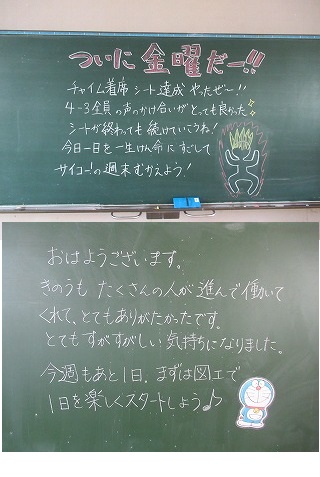 ついに金曜だー!!
チャイム着席シート達成やったぜー!!
4-3全員の声のかけ合いがとっても良かった
シートが終わっても続けていこうね!
今日一日を一生けん命にすごして
サイコーの週末むかえよう!
おはようございます。
きのうもたくさんの人が進んで働いて
くれて、とてもありがたかったです。
とてもすがすがしい気持ちになりました。
今週もあと1日。まずは図工で
1日を楽しくスタートしよう♪